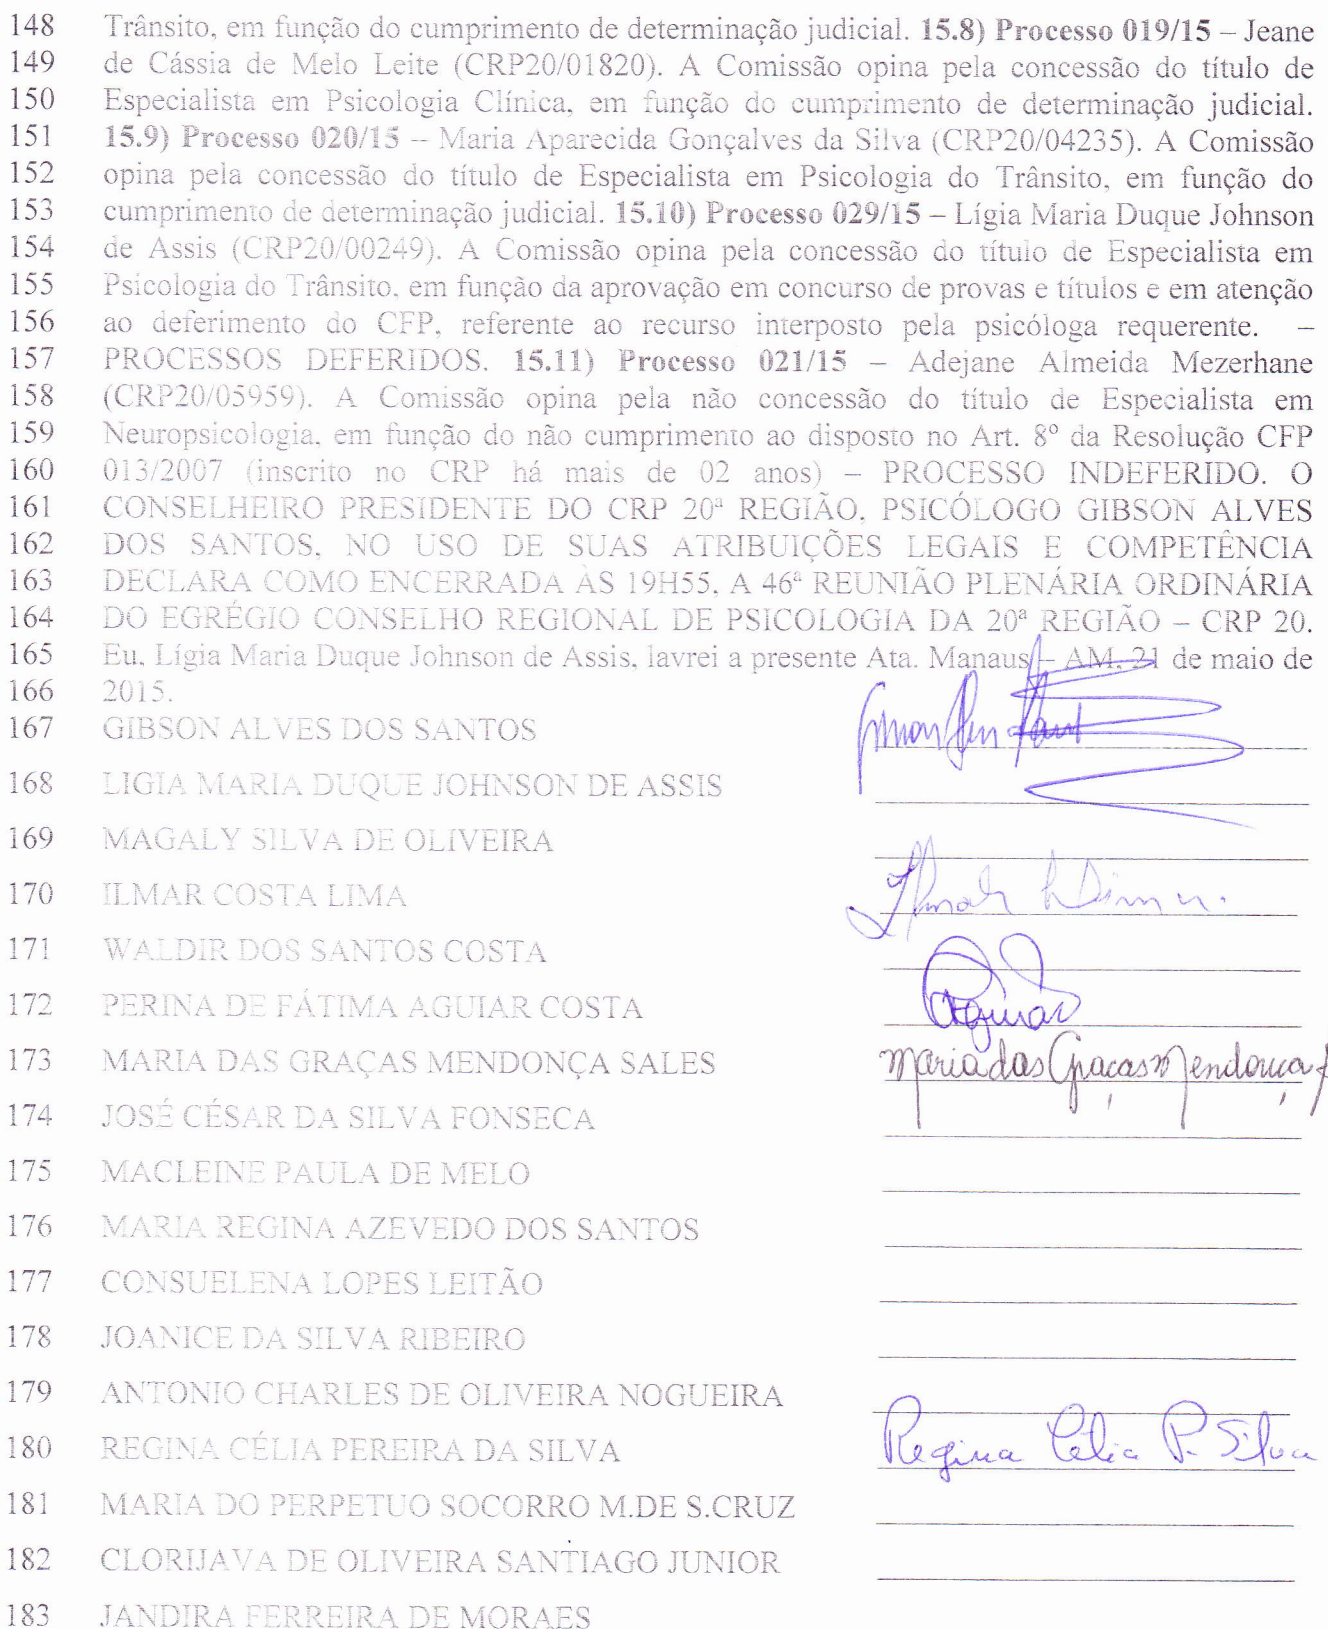 148 Trânsito, em função do cumprimento de determinação judicial. 15.8) Processo 019/15 – Jeane
149 de Cássia de Melo Leite (CRP20/01820). A Comissão opina pela concessão do título de
150 Especialista em Psicologia Clínica, em função do cumprimento de determinação judicial.
151 15.9) Processo 020/15 – Maria Aparecida Gonçalves da Silva (CRP20/04235). A Comissão
152 opina pela concessão do título de Especialista em Psicologia do Trânsito, em função do
153 cumprimento de determinação judicial. 15.10) Processo 029/15 – Lígia Maria Duque Johnson
154 de Assis (CRP20/00249). A Comissão opina pela concessão do título de Especialista em
155 Psicologia do Trânsito, em função da aprovação em concurso de provas e títulos e em atenção
156 ao deferimento do CFP, referente ao recurso interposto pela psicóloga requerente. –
157 PROCESSOS DEFERIDOS. 15.11) Processo 021/15 – Adejane Almeida Mezerhane
158 (CRP20/05959). A Comissão opina pela não concessão do título de Especialista em
159 Neuropsicologia, em função do não cumprimento ao disposto no Art. 8º da Resolução CFP
160 013/2007 (inscrito no CRP há mais de 02 anos) – PROCESSO INDEFERIDO. O
161 CONSELHEIRO PRESIDENTE DO CRP 20ª REGIÃO, PSICÓLOGO GIBSON ALVES
162 DOS SANTOS, NO USO DE SUAS ATRIBUIÇÕES LEGAIS E COMPETÊNCIA
163 DECLARA COMO ENCERRADA ÀS 19H55, A 46ª REUNIÃO PLENÁRIA ORDINÁRIA
164 DO EGRÉGIO CONSELHO REGIONAL DE PSICOLOGIA DA 20ª REGIÃO – CRP 20.
165 Eu, Lígia Maria Duque Johnson de Assis, lavrei a presente Ata. Manaus – AM, 21 de maio de
166 2015.
167 GIBSON ALVES DOS SANTOS
168 LIGIA MARIA DUQUE JOHNSON DE ASSIS
169 MAGALY SILVA DE OLIVEIRA
170 ILMAR COSTA LIMA
171 WALDIR DOS SANTOS COSTA
172 PERINA DE FÁTIMA AGUIAR COSTA
173 MARIA DAS GRAÇAS MENDONÇA SALES Maria das Graças Mendonça
174 JOSÉ CÉSAR DA SILVA FONSECA
175 MACLEINE PAULA DE MELO
176 MARIA REGINA AZEVEDO DOS SANTOS
177 CONSUELENA LOPES LEITÃO
178 JOANICE DA SILVA RIBEIRO
179 ANTONIO CHARLES DE OLIVEIRA NOGUEIRA
180 REGINA CÉLIA PEREIRA DA SILVA Regina Célia P. Silva
181 MARIA DO PERPETUO SOCORRO M.DE S.CRUZ
182 CLORIJAVA DE OLIVEIRA SANTIAGO JUNIOR
183 JANDIRA FERREIRA DE MORAES